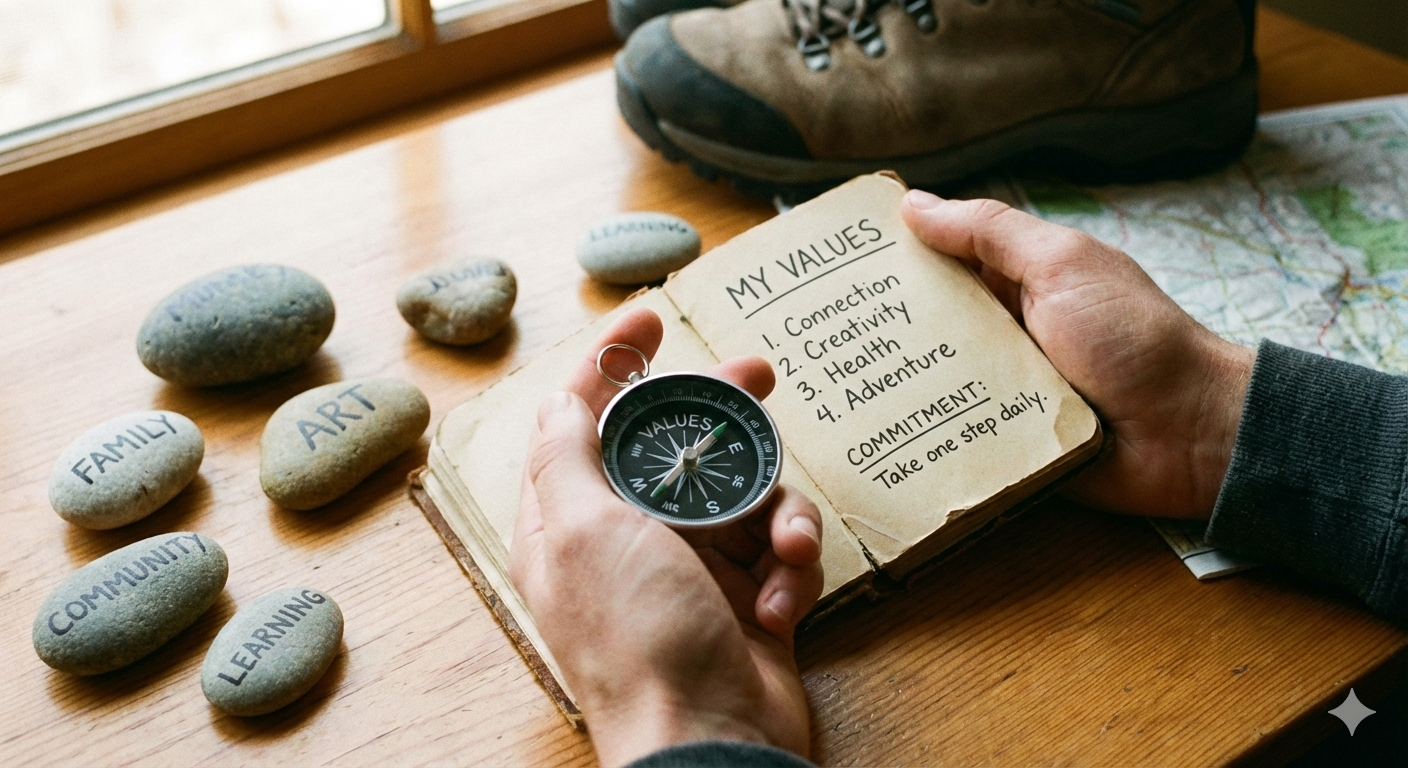 LEARNING
FAMILY
ART
COMMUNITY
LEARNING
MY VALUES
1. Connection
2. Creativity
3. Health
4. Adventure
COMMITMENT:
Take one step daily.
VALUES
E
SE
S
W